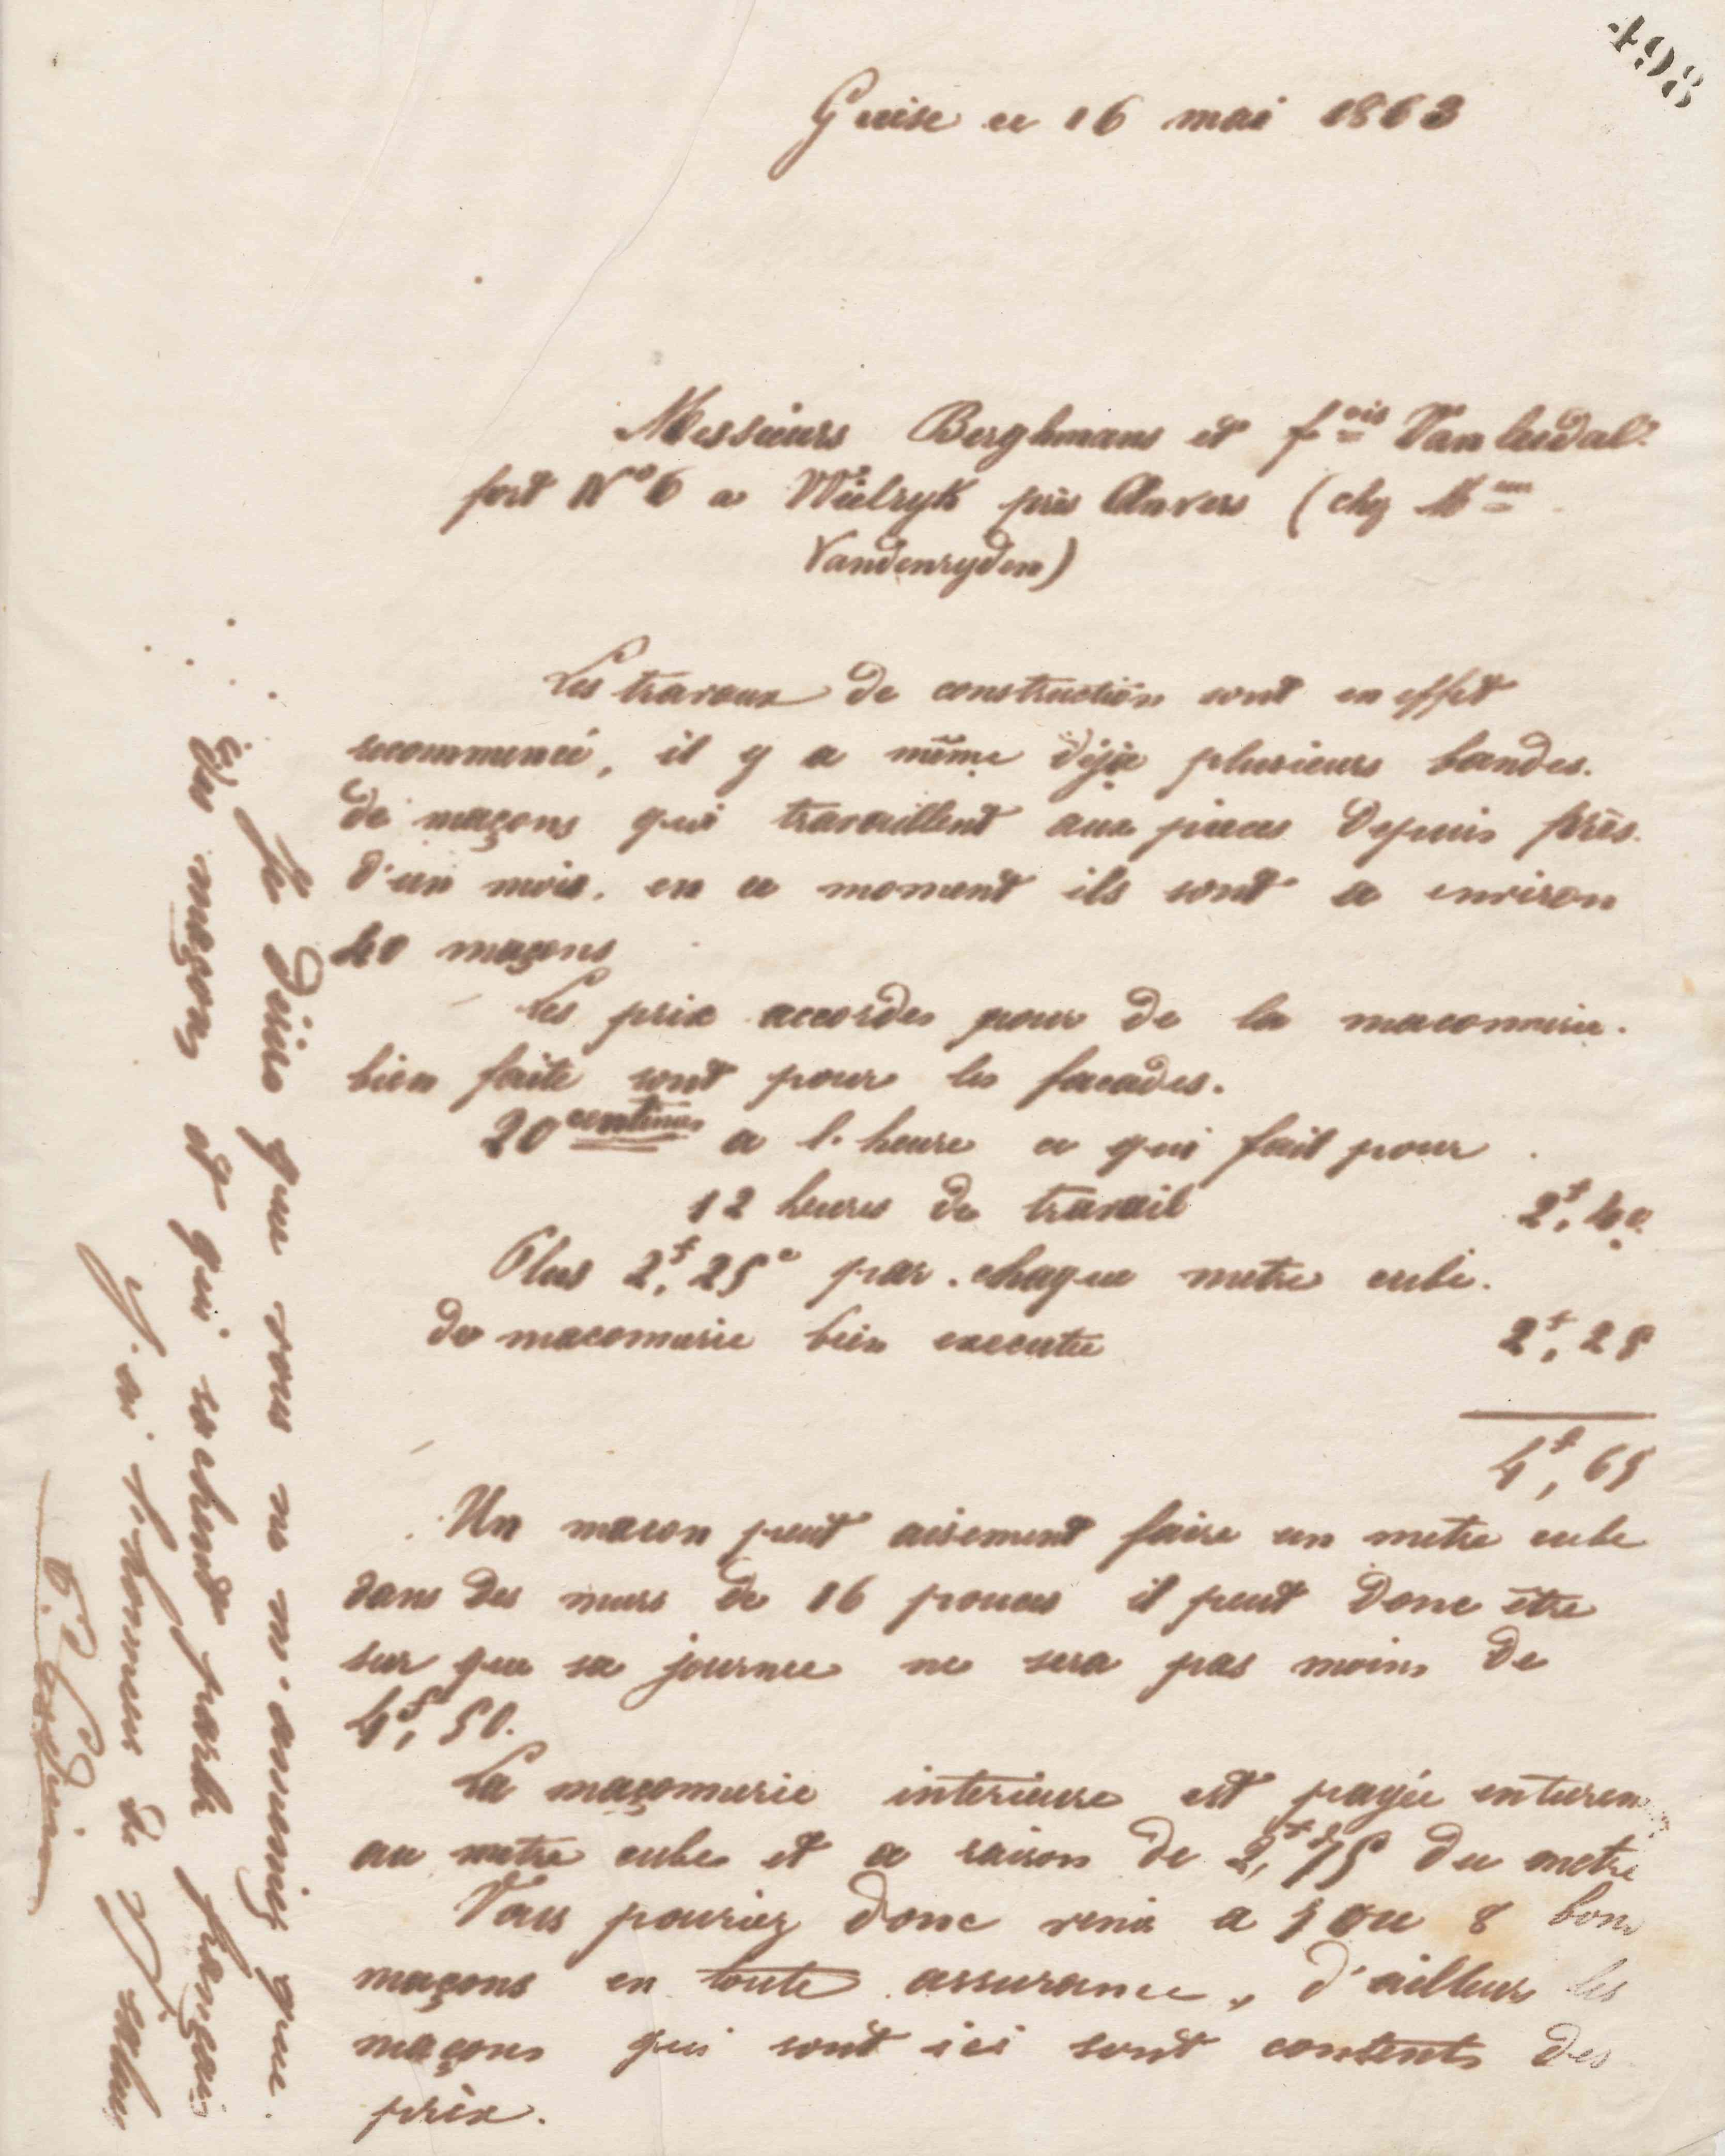 498
Guise ce 16 mai 1863
Messieurs Berghmans et f.ois Van
fort N° 6 a Wielryk près Anvers (chez Mme
Vandenryden)
Les travaux de construction sont en effet
recommencé, il y a même déjà plusieurs bandes.
de maçons qui travaillent aux pieces depuis près.
d'un mois. en ce moment ils sont a environ
40 maçons
Les prix accordes pour de la maconnerie.
bien faite sont pour les facades.
20 centimes a l'heure ce qui fait pour
12 heures de travail 2f,40
Plus 2f,25c par chaque metre cube.
de maconnerie bien executée 2f,25
4f,65
Un macon peut aisement faire un metre cube
dans des murs de 16 pouces il peut donc être
sur que sa journee ne sera pas moins de
4f,50.
La maçonnerie interieure est payée entierem
au metre cube et a raison de 2f,75 du metre
Vous pouriez donc venir a 7 ou 8 bons
maçons en toute assurance, d'ailleurs les
maçons qui sont ici sont contents des
prix.
Je désire que vous ne m'ameniez que.
des maçons et qui sachent parler français
J'ai l'honneur de vs saluer
Godin